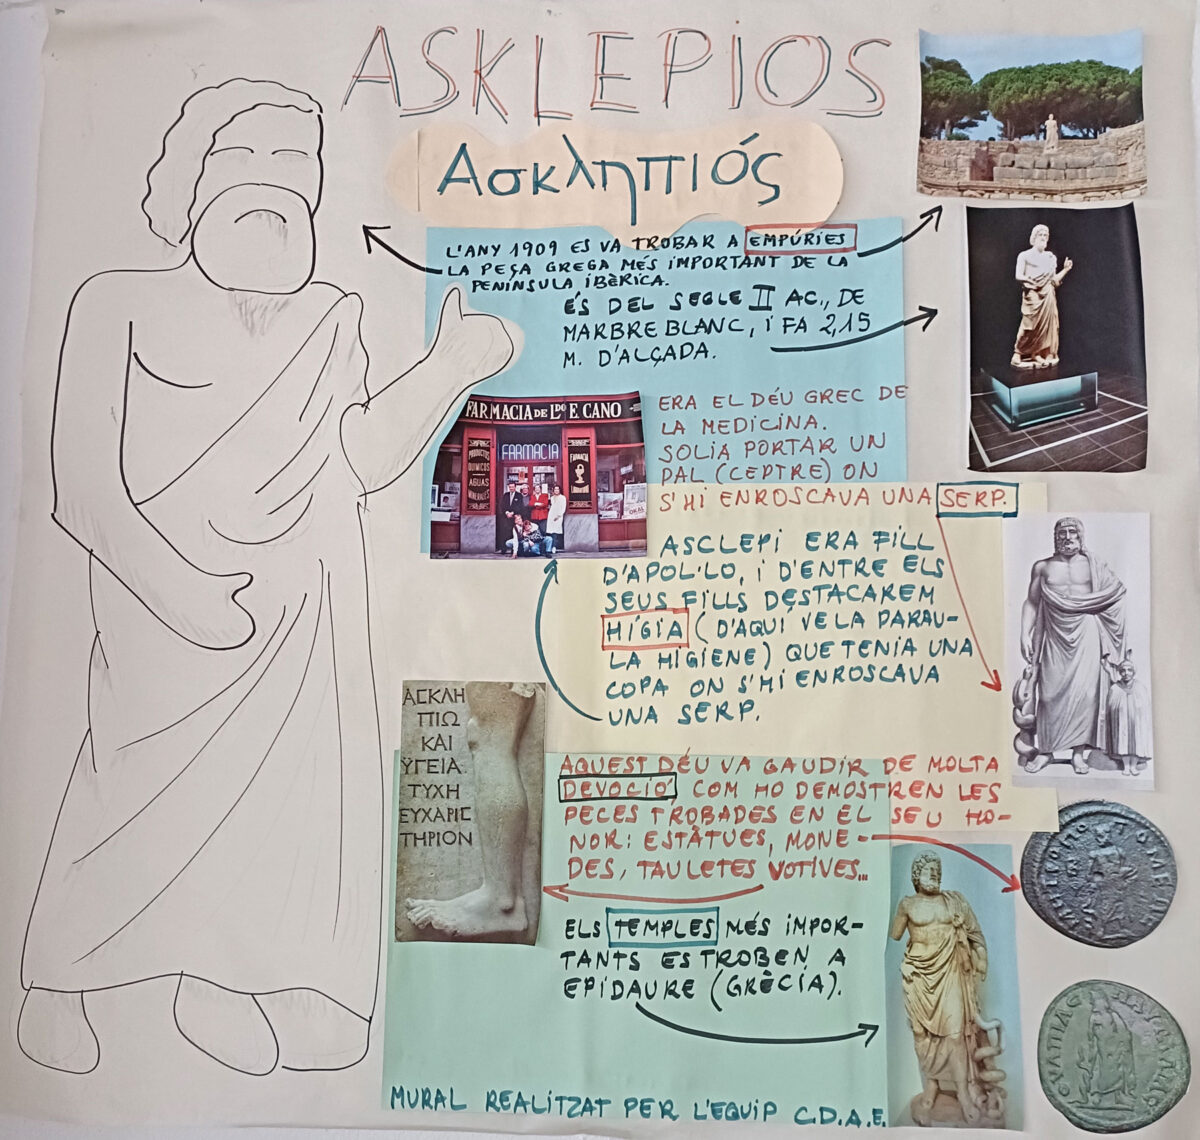 ASKLEPIOS
Ασκληπιός
L'ANY 1909 ES VA TROBAR A EMPÚRIES
LA PEÇA GREGA MÉS IMPORTANT DE LA
PENÍNSULA IBÈRICA.
ÉS DEL SEGLE II AC., DE
MARBRE BLANC, I FA 2,15
M. D'ALÇADA.
FARMACIA DE LDO E. CANO
FARMACIA
PRODUCTOS
QUIMICOS
AGUAS
MINERALES
FARMACIA
ERA EL DÉU GREC DE
LA MEDICINA.
SOLIA PORTAR UN
PAL (CEPTRE) ON
S'HI ENROSCAVA UNA SERP.
ASCLEPI ERA FILL
D'APOL·LO, I D'ENTRE ELS
SEUS FILLS DESTACAREM
HÍGIA (D'AQUÍ VE LA PARAU-
LA HIGIENE) QUE TENIA UNA
COPA ON S'HI ENROSCAVA
UNA SERP.
ΑΣΚΛΗ
ΠΙΩ
ΚΑΙ
ΥΓΕΙΑ
ΤΥΧΗ
ΕΥΧΑΡΙΣ
ΤΗΡΙΟΝ
AQUEST DÉU VA GAUDIR DE MOLTA
DEVOCIÓ COM HO DEMOSTREN LES
PECES TROBADES EN EL SEU HO-
NOR: ESTÀTUES, MONE-
DES, TAULETES VOTIVES...
ELS TEMPLES MÉS IMPOR-
TANTS ES TROBEN A
EPIDAURE (GRÈCIA).
MURAL REALITZAT PER L'EQUIP C.D.A.E.